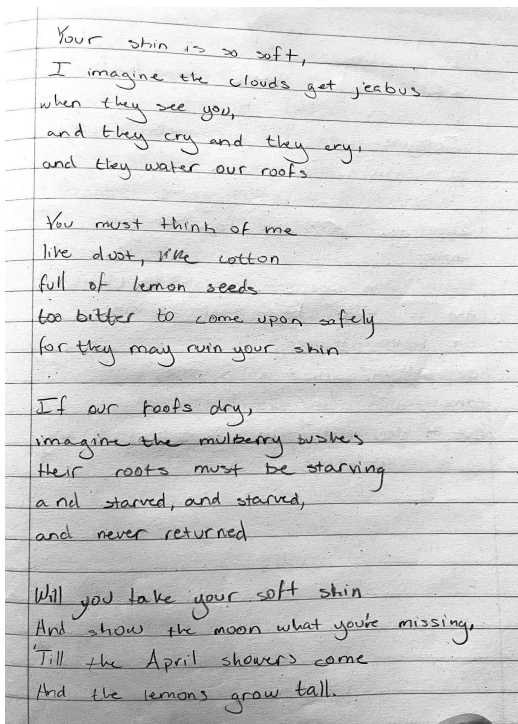 Your skin is so soft,
I imagine the clouds get jealous
when they see you,
and they cry and they cry,
and they water our roofs
You must think of me
like dust, like cotton
full of lemon seeds
too bitter to come upon safely
for they may ruin your skin
If our roofs dry,
imagine the mulberry bushes
their roots must be starving
and starved, and starved,
and never returned
Will you take your soft skin
And show the moon what you're missing,
'Till the April showers come
And the lemons grow tall.